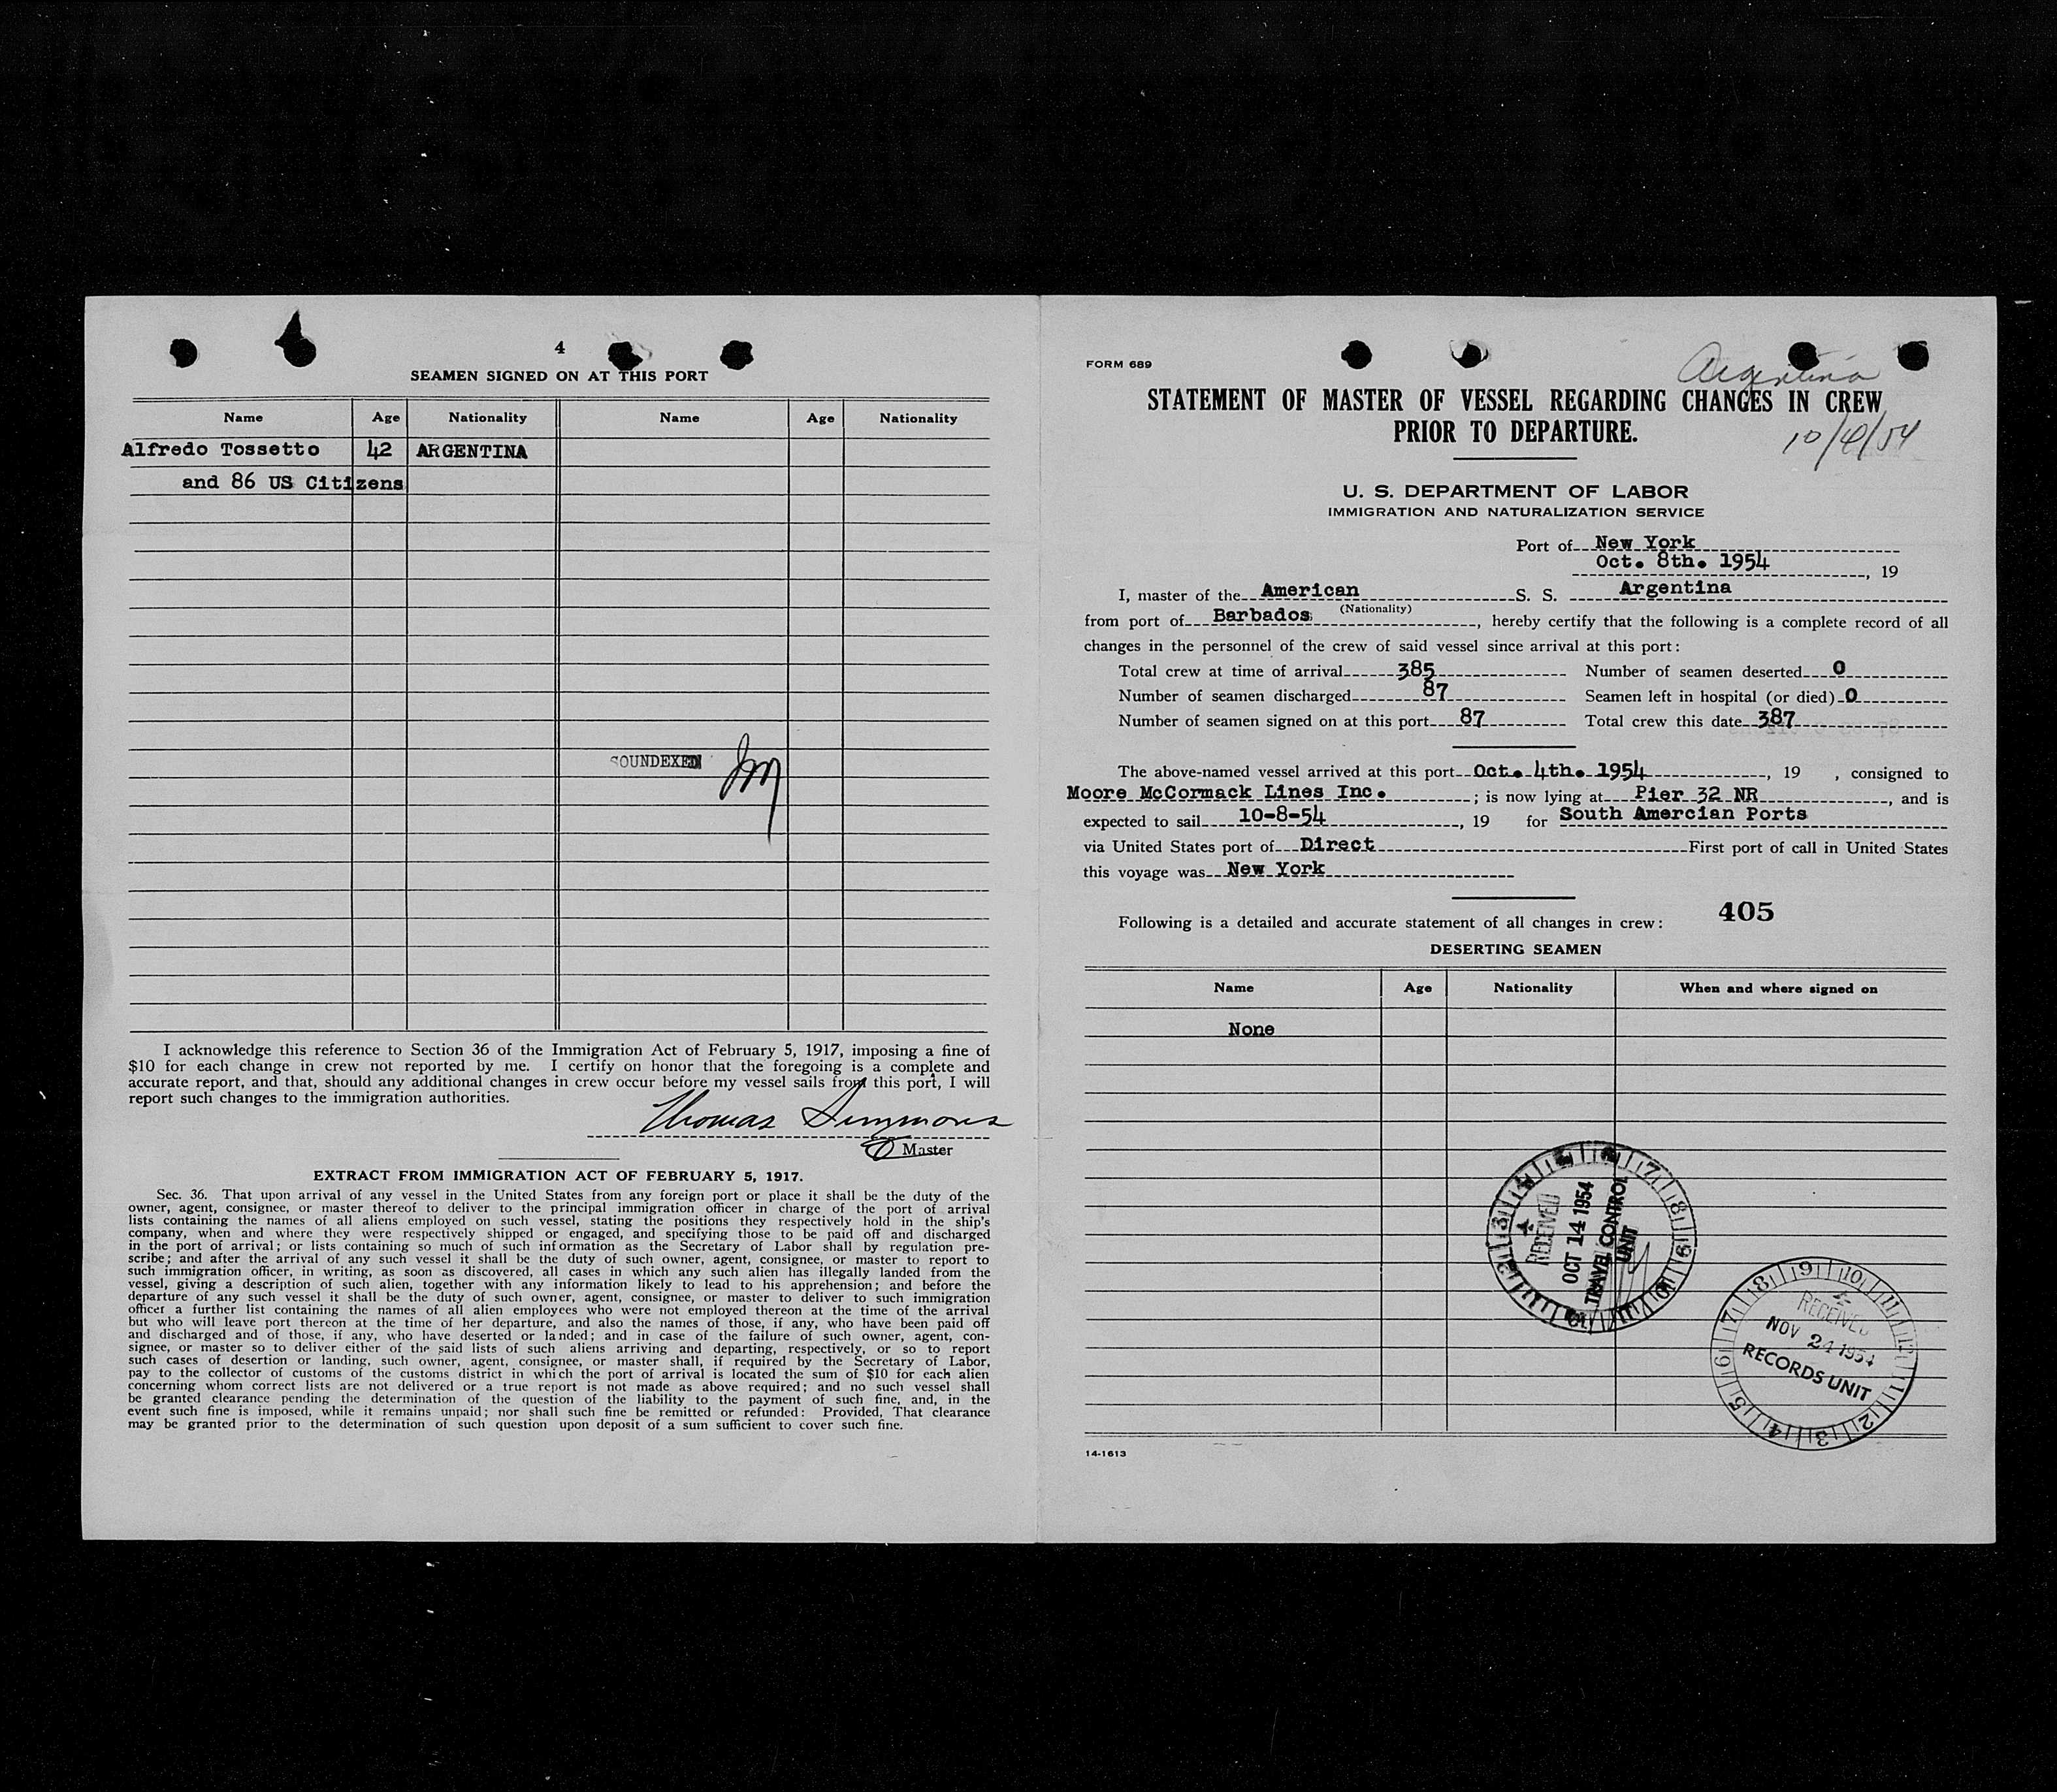 4
SEAMEN SIGNED ON AT THIS PORT
Name Age Nationality Name Age Nationality
Alfredo Tossetto 42 ARGENTINA
and 86 US Citizens
SOUNDEXED
I acknowledge this reference to Section 36 of the Immigration Act of February 5, 1917, imposing a fine of
$10 for each change in crew not reported by me. I certify on honor that the foregoing is a complete and
accurate report, and that, should any additional changes in crew occur before my vessel sails from this port, I will
report such changes to the immigration authorities.
Thomas Simmons
Master
EXTRACT FROM IMMIGRATION ACT OF FEBRUARY 5, 1917.
Sec. 36. That upon arrival of any vessel in the United States from any foreign port or place it shall be the duty of the
owner, agent, consignee, or master thereof to deliver to the principal immigration officer in charge of the port of arrival
lists containing the names of all aliens employed on such vessel, stating the positions they respectively hold in the ship's
company, when and where they were respectively shipped or engaged, and specifying those to be paid off and discharged
in the port of arrival; or lists containing so much of such information as the Secretary of Labor shall by regulation pre-
scribe; and after the arrival of any such vessel it shall be the duty of such owner, agent, consignee, or master to report to
such immigration officer, in writing, as soon as discovered, all cases in which any such alien has illegally landed from the
vessel, giving a description of such alien, together with any information likely to lead to his apprehension; and before the
departure of any such vessel it shall be the duty of such owner, agent, consignee, or master to deliver to such immigration
officer a further list containing the names of all alien employees who were not employed thereon at the time of the arrival
but who will leave port thereon at the time of her departure, and also the names of those, if any, who have been paid off
and discharged and of those, if any, who have deserted or landed; and in case of the failure of such owner, agent, con-
signee, or master so to deliver either of the said lists of such aliens arriving and departing, respectively, or so to report
such cases of desertion or landing, such owner, agent, consignee, or master shall, if required by the Secretary of Labor,
pay to the collector of customs of the customs district in which the port of arrival is located the sum of $10 for each alien
concerning whom correct lists are not delivered or a true report is not made as above required; and no such vessel shall
be granted clearance pending the determination of the question of the liability to the payment of such fine, and, in the
event such fine is imposed, while it remains unpaid; nor shall such fine be remitted or refunded: Provided, That clearance
may be granted prior to the determination of such question upon deposit of a sum sufficient to cover such fine.
FORM 689
Argentina
STATEMENT OF MASTER OF VESSEL REGARDING CHANGES IN CREW
PRIOR TO DEPARTURE.
10/4/54
U. S. DEPARTMENT OF LABOR
IMMIGRATION AND NATURALIZATION SERVICE
Port of New York
Oct. 8th. 1954, 19
I, master of the American S. S. Argentina
(Nationality)
from port of Barbados, hereby certify that the following is a complete record of all
changes in the personnel of the crew of said vessel since arrival at this port:
Total crew at time of arrival 385 Number of seamen deserted 0
Number of seamen discharged 87 Seamen left in hospital (or died) 0
Number of seamen signed on at this port 87 Total crew this date 387
The above-named vessel arrived at this port Oct. 4th. 1954, 19 , consigned to
Moore McCormack Lines Inc. ; is now lying at Pier 32 NR, and is
expected to sail 10-8-54, 19 for South Amercian Ports
via United States port of Direct First port of call in United States
this voyage was New York
405
Following is a detailed and accurate statement of all changes in crew:
DESERTING SEAMEN
Name Age Nationality When and where signed on
None
RECEIVED
OCT 14 1954
TRAVEL CONTROL
UNIT
RECEIVED
NOV 24 1954
RECORDS UNIT
14-1613